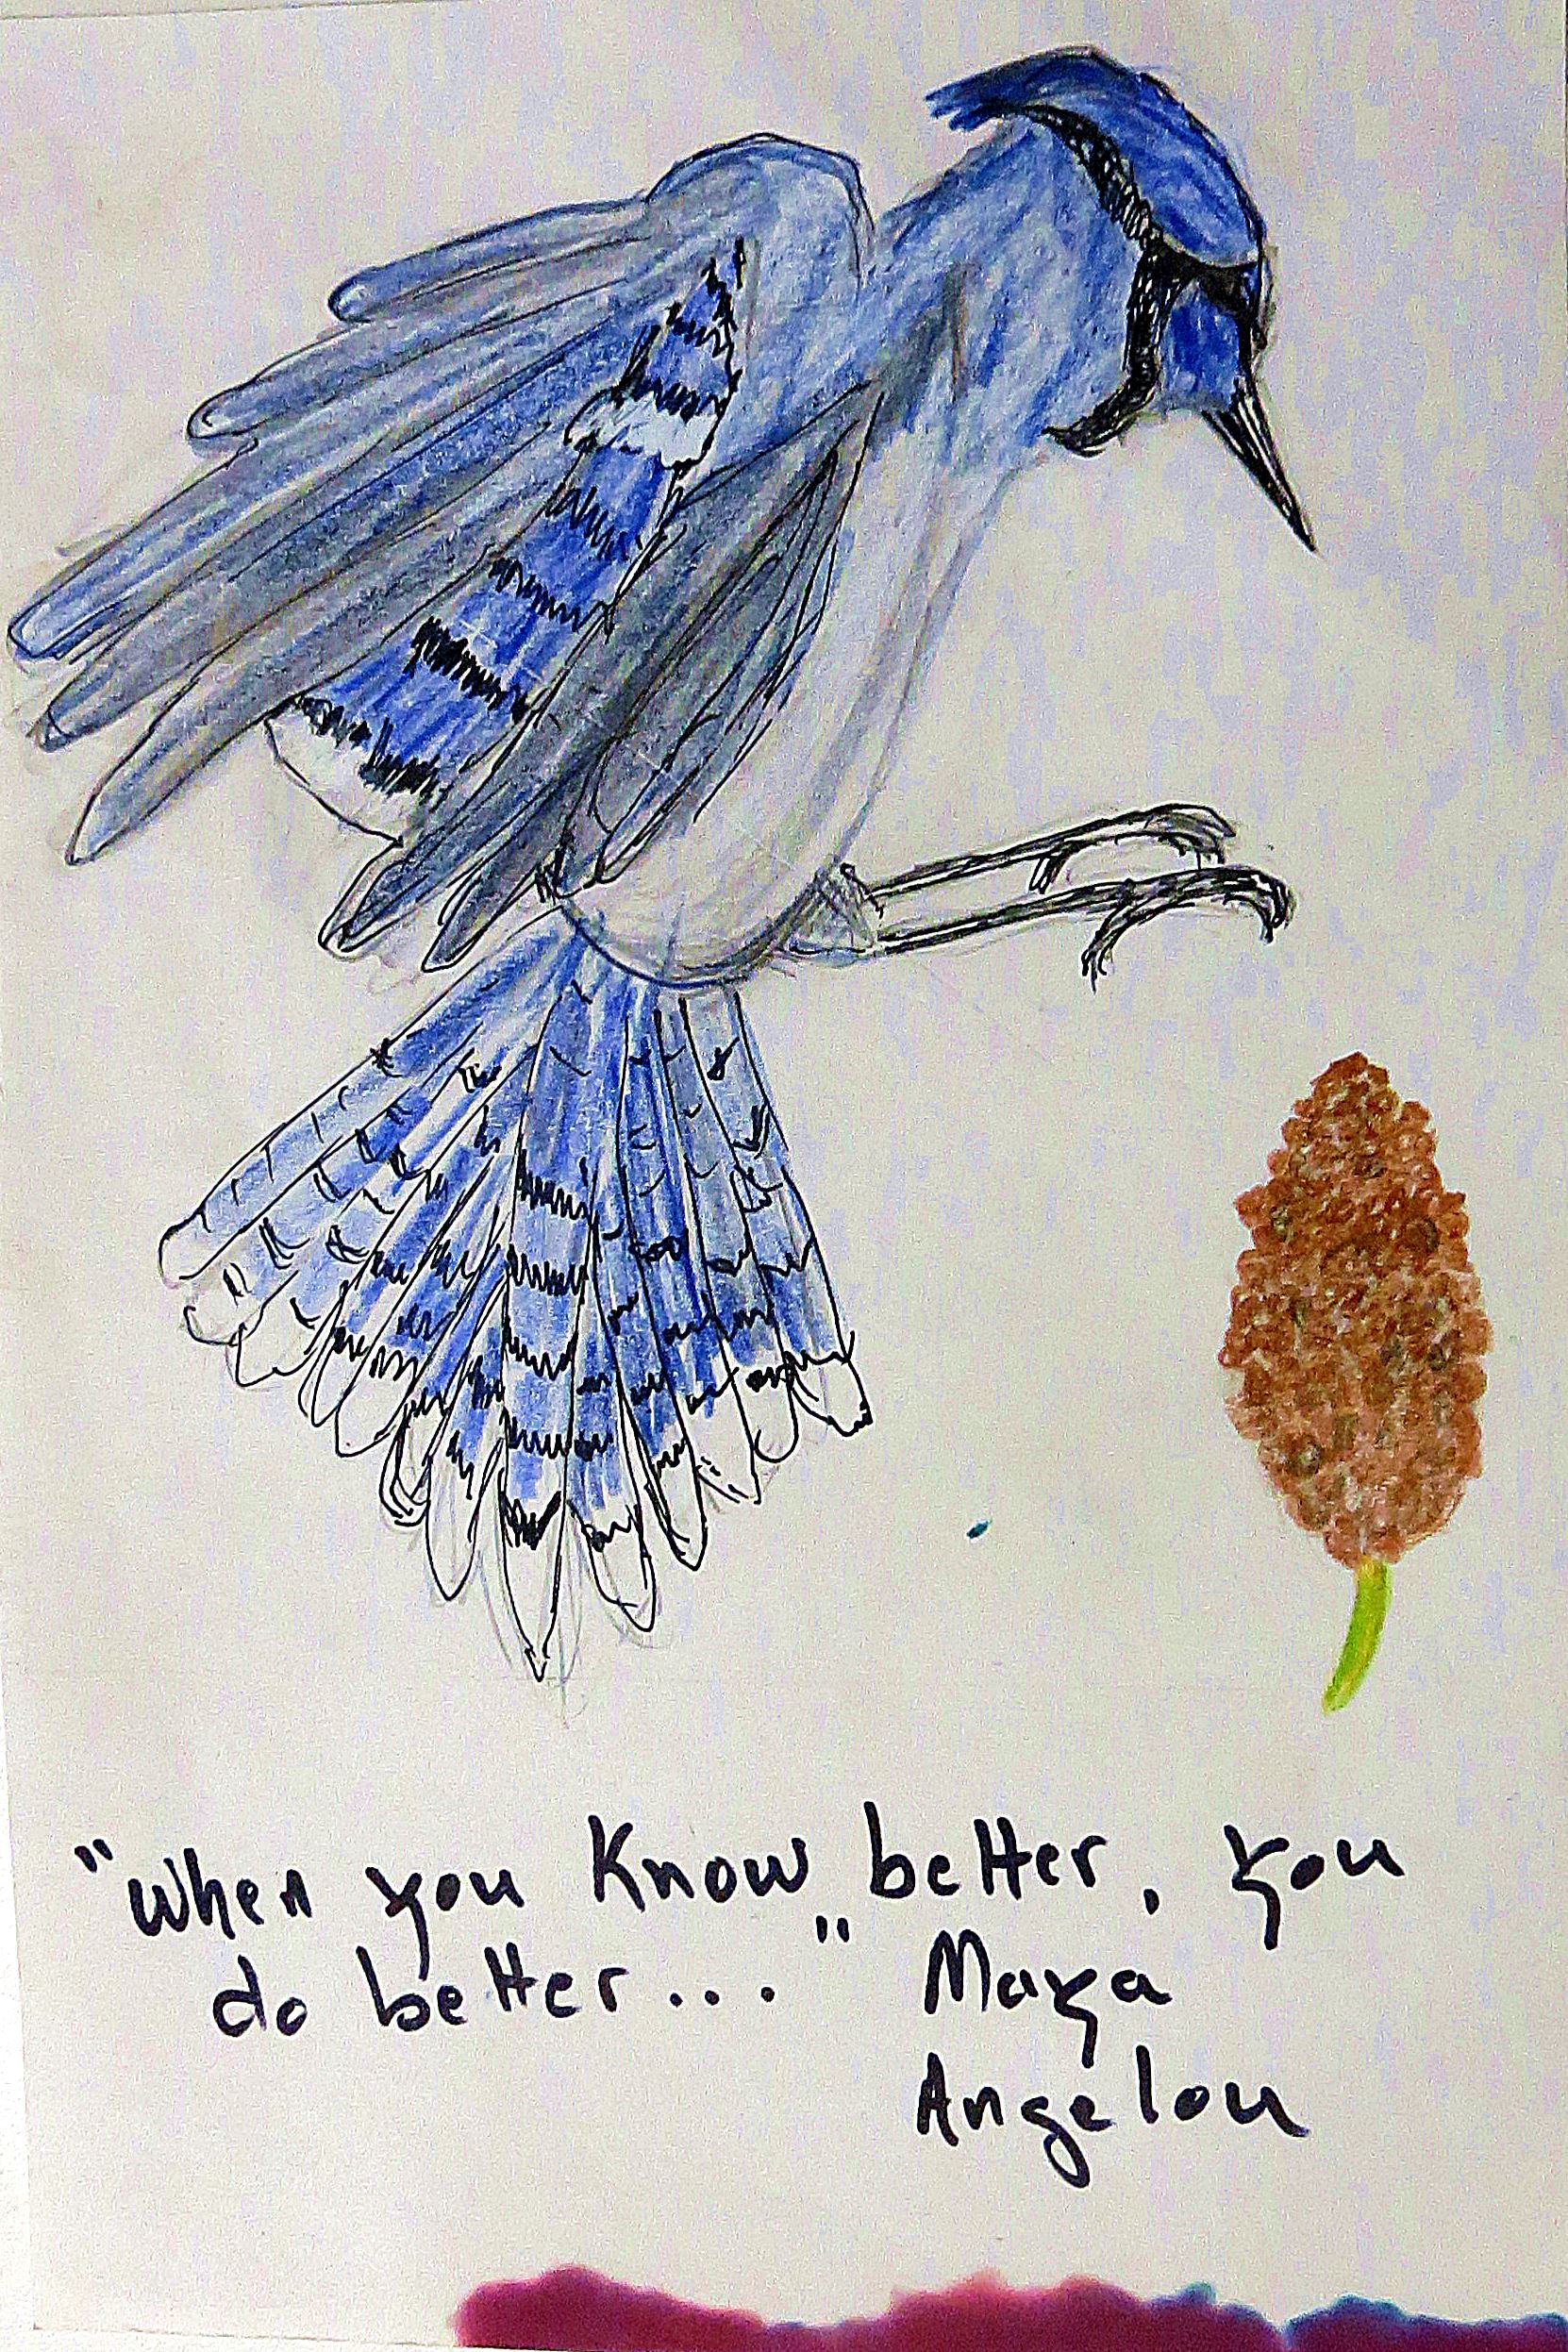 "When you Know better, you
do better..." Maya
Angelou